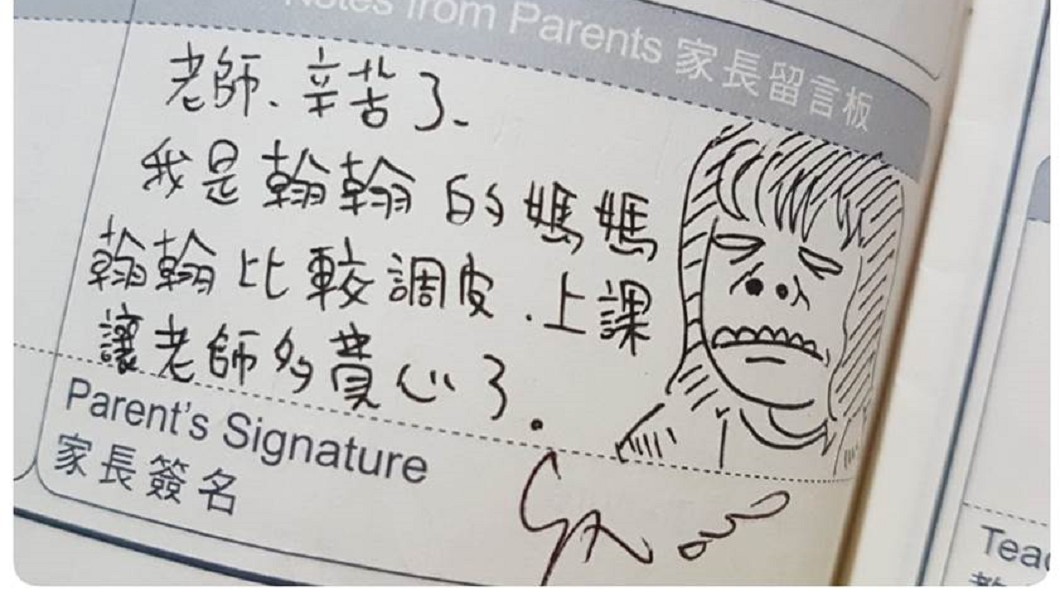 Notes from Parents 家長留言板
老師、辛苦了、
我是翰翰的媽媽
翰翰比較調皮.上課
讓老師多費心了.
Parent's Signature
家長簽名
Teac